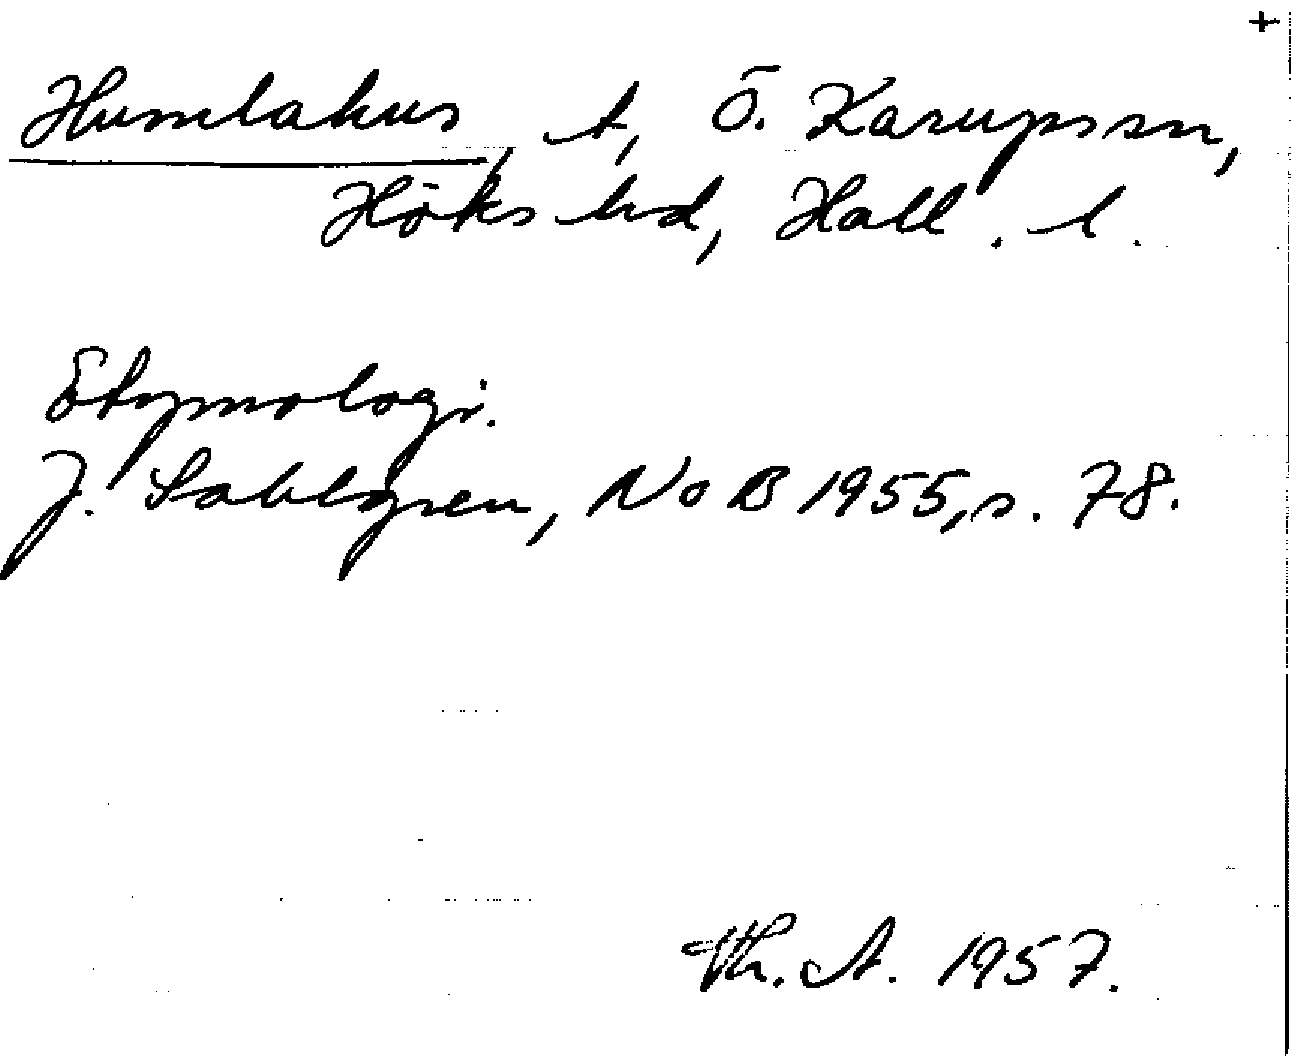 +
Humlahus, t, Ö. Karups sn,
Höks hd, Hall. l.
Etymologi.
J. Sahlgren, NoB 1955, s. 78.
Th. A. 1957.